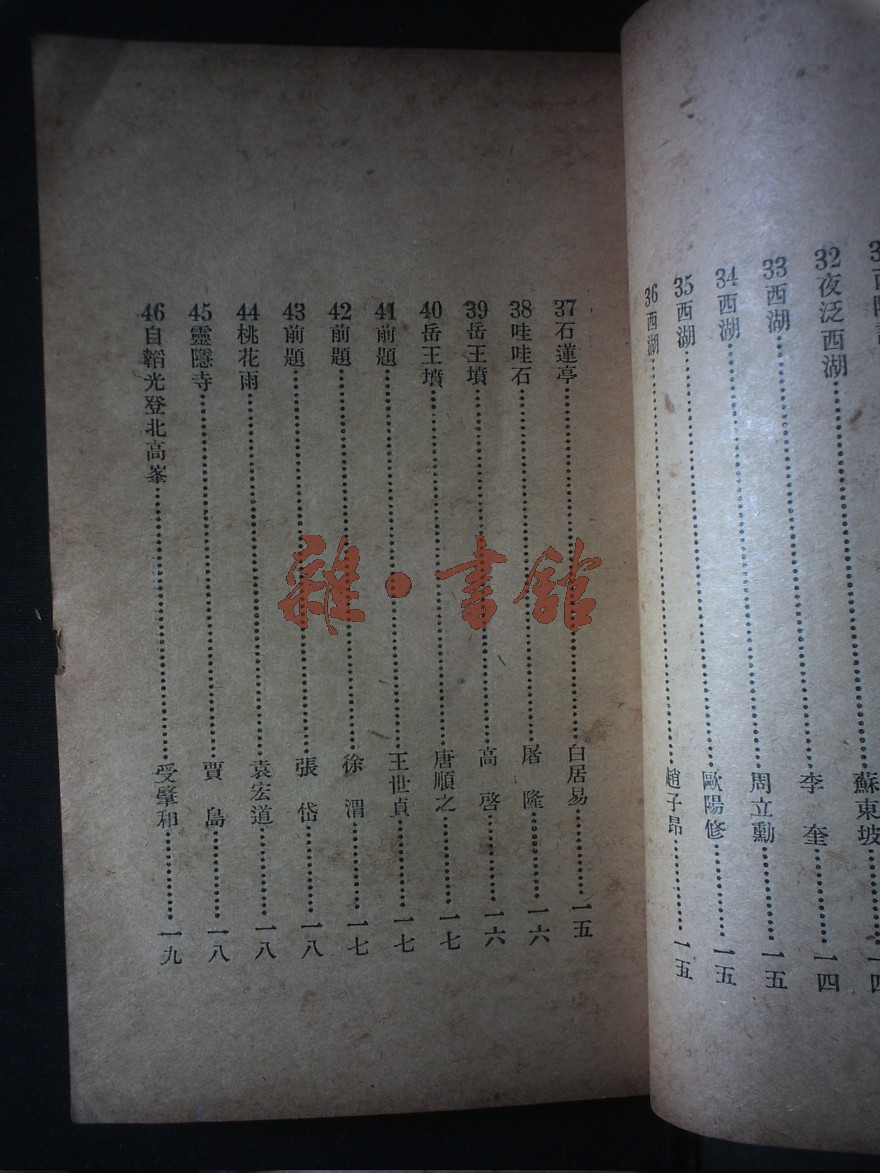 32夜泛西湖 蘇東坡 一四
33西湖 李奎 一四
34西湖 周立勳 一五
35西湖 歐陽修 一五
36西湖 趙子昂 一五
37石蓮亭 白居易 一五
38哇哇石 屠隆 一六
39岳王墳 高啓 一六
40岳王墳 唐順之 一七
41前題 王世貞 一七
42前題 徐渭 一七
43前題 張岱 一八
44桃花雨 袁宏道 一八
45靈隱寺 賈島 一八
46自韜光登北高峯 受肇和 一九
雜·書館